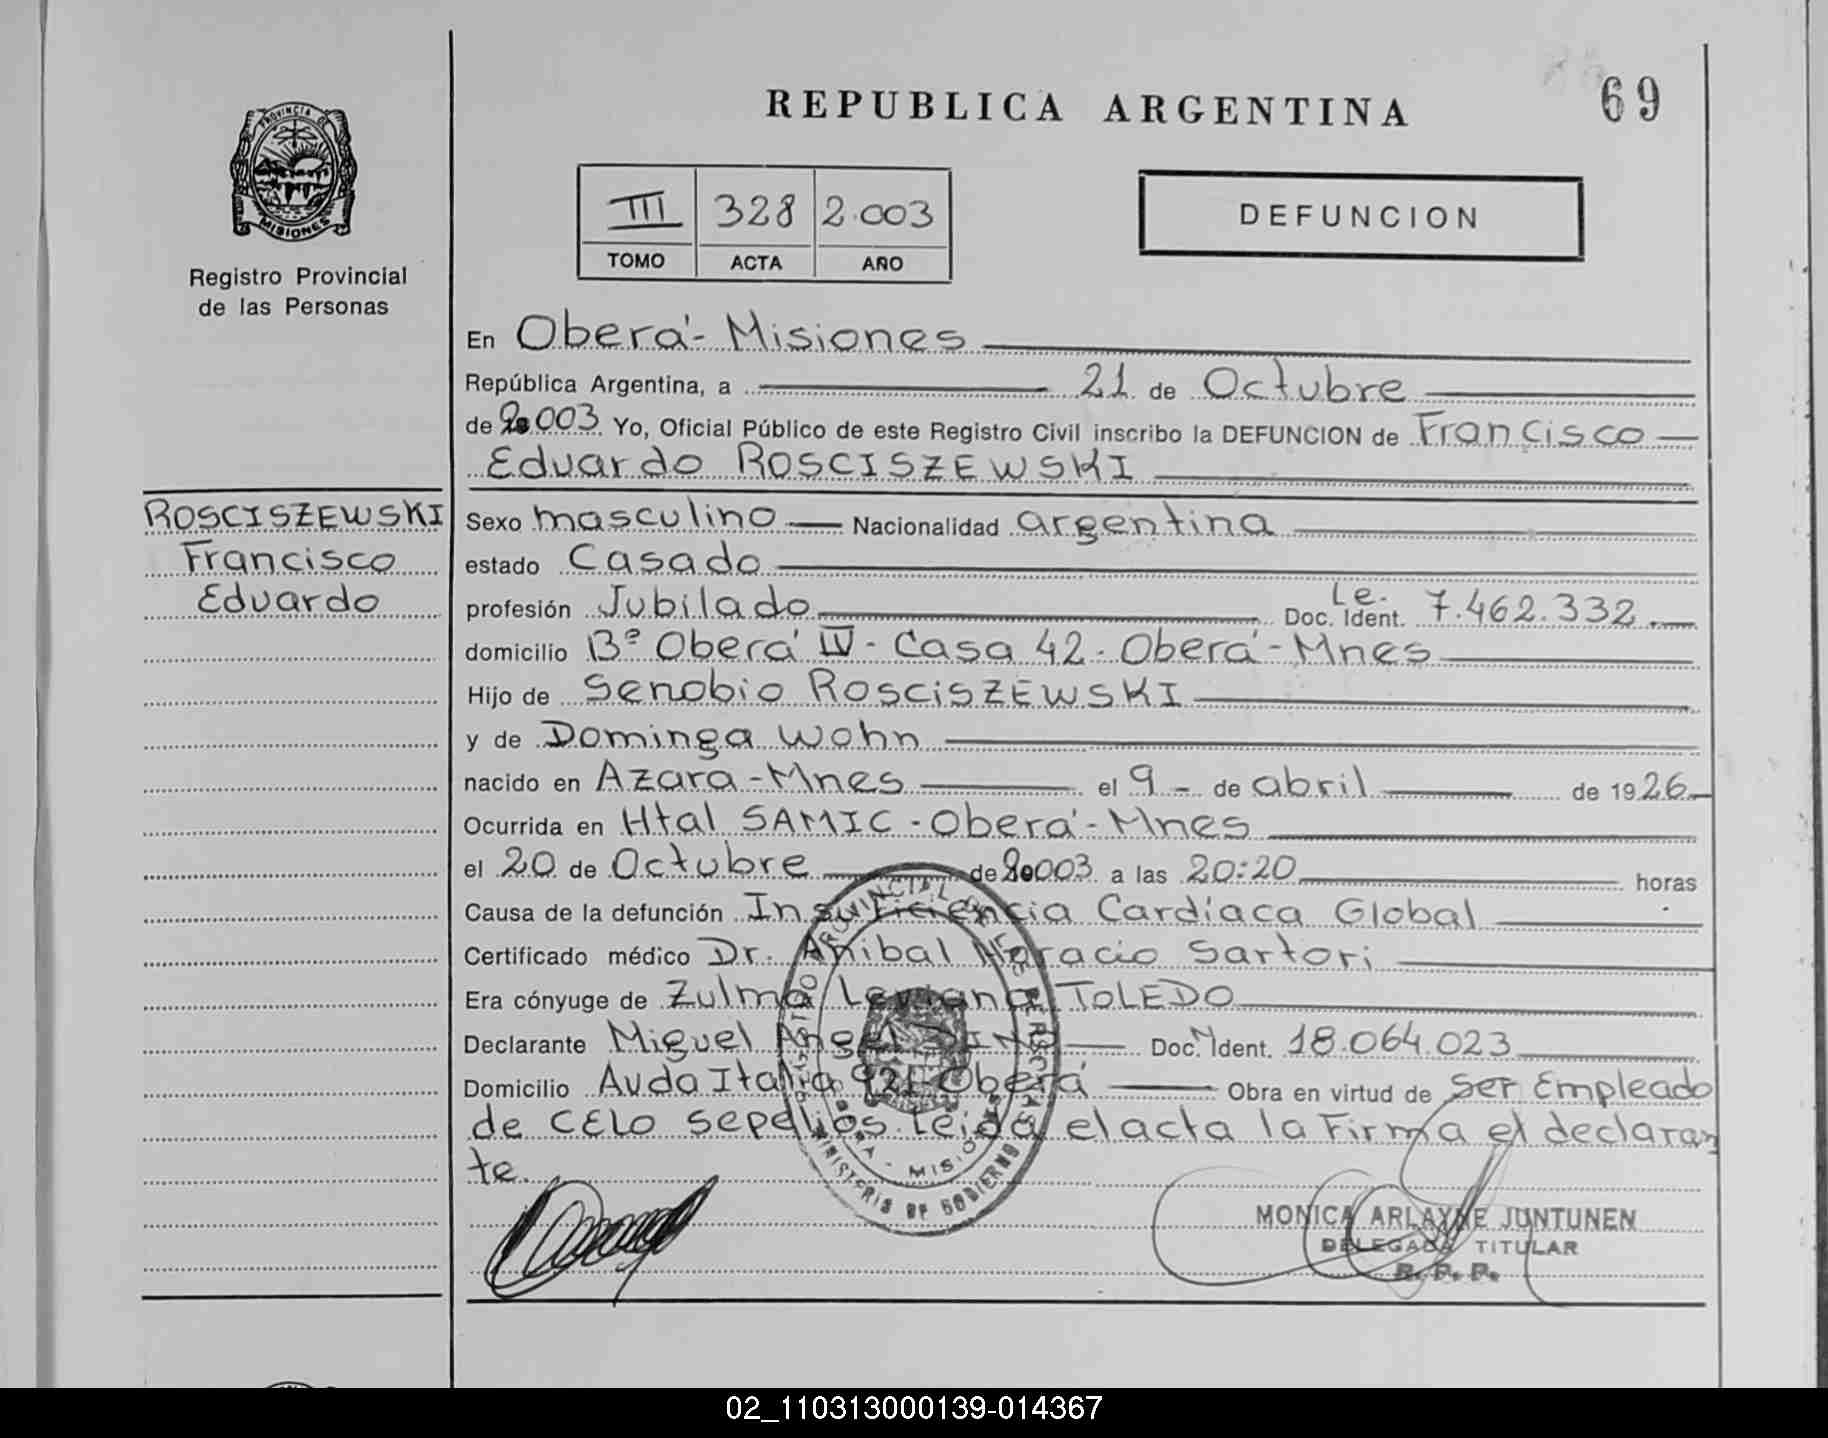 REPUBLICA ARGENTINA
69
PROVINCIA DE
MISIONES
Registro Provincial
de las Personas
III 328 2.003
TOMO ACTA AÑO
DEFUNCION
En Oberá - Misiones
República Argentina, a 21 de Octubre
de 2.003 Yo, Oficial Público de este Registro Civil inscribo la DEFUNCION de Francisco
Eduardo ROSCISZEWSKI
ROSCISZEWSKI
Francisco
Eduardo
Sexo masculino Nacionalidad argentina
estado Casado
profesión Jubilado Doc. Ident. L.e. 7.462.332
domicilio Bº Oberá IV - Casa 42 - Oberá - Mnes
Hijo de Senobio ROSCISZEWSKI
y de Dominga Wohn
nacido en Azara - Mnes el 9 - de abril de 1926
Ocurrida en Htal SAMIC - Oberá - Mnes
el 20 de Octubre de 2.003 a las 20:20 horas
Causa de la defunción Insuficiencia Cardíaca Global
Certificado médico Dr. Anibal Horacio Sartori
Era cónyuge de Zulma TOLEDO
Declarante Miguel Angel Doc. Ident. 18.064.023
Domicilio Avda Italia 921 Oberá Obra en virtud de ser Empleado
de CELO sepelios. Leida el acta la Firma el declaran
te.
MINISTERIO DE GOBIERNO
MONICA ARLAYNE JUNTUNEN
DELEGADA TITULAR
R. P. P.
02_110313000139-014367